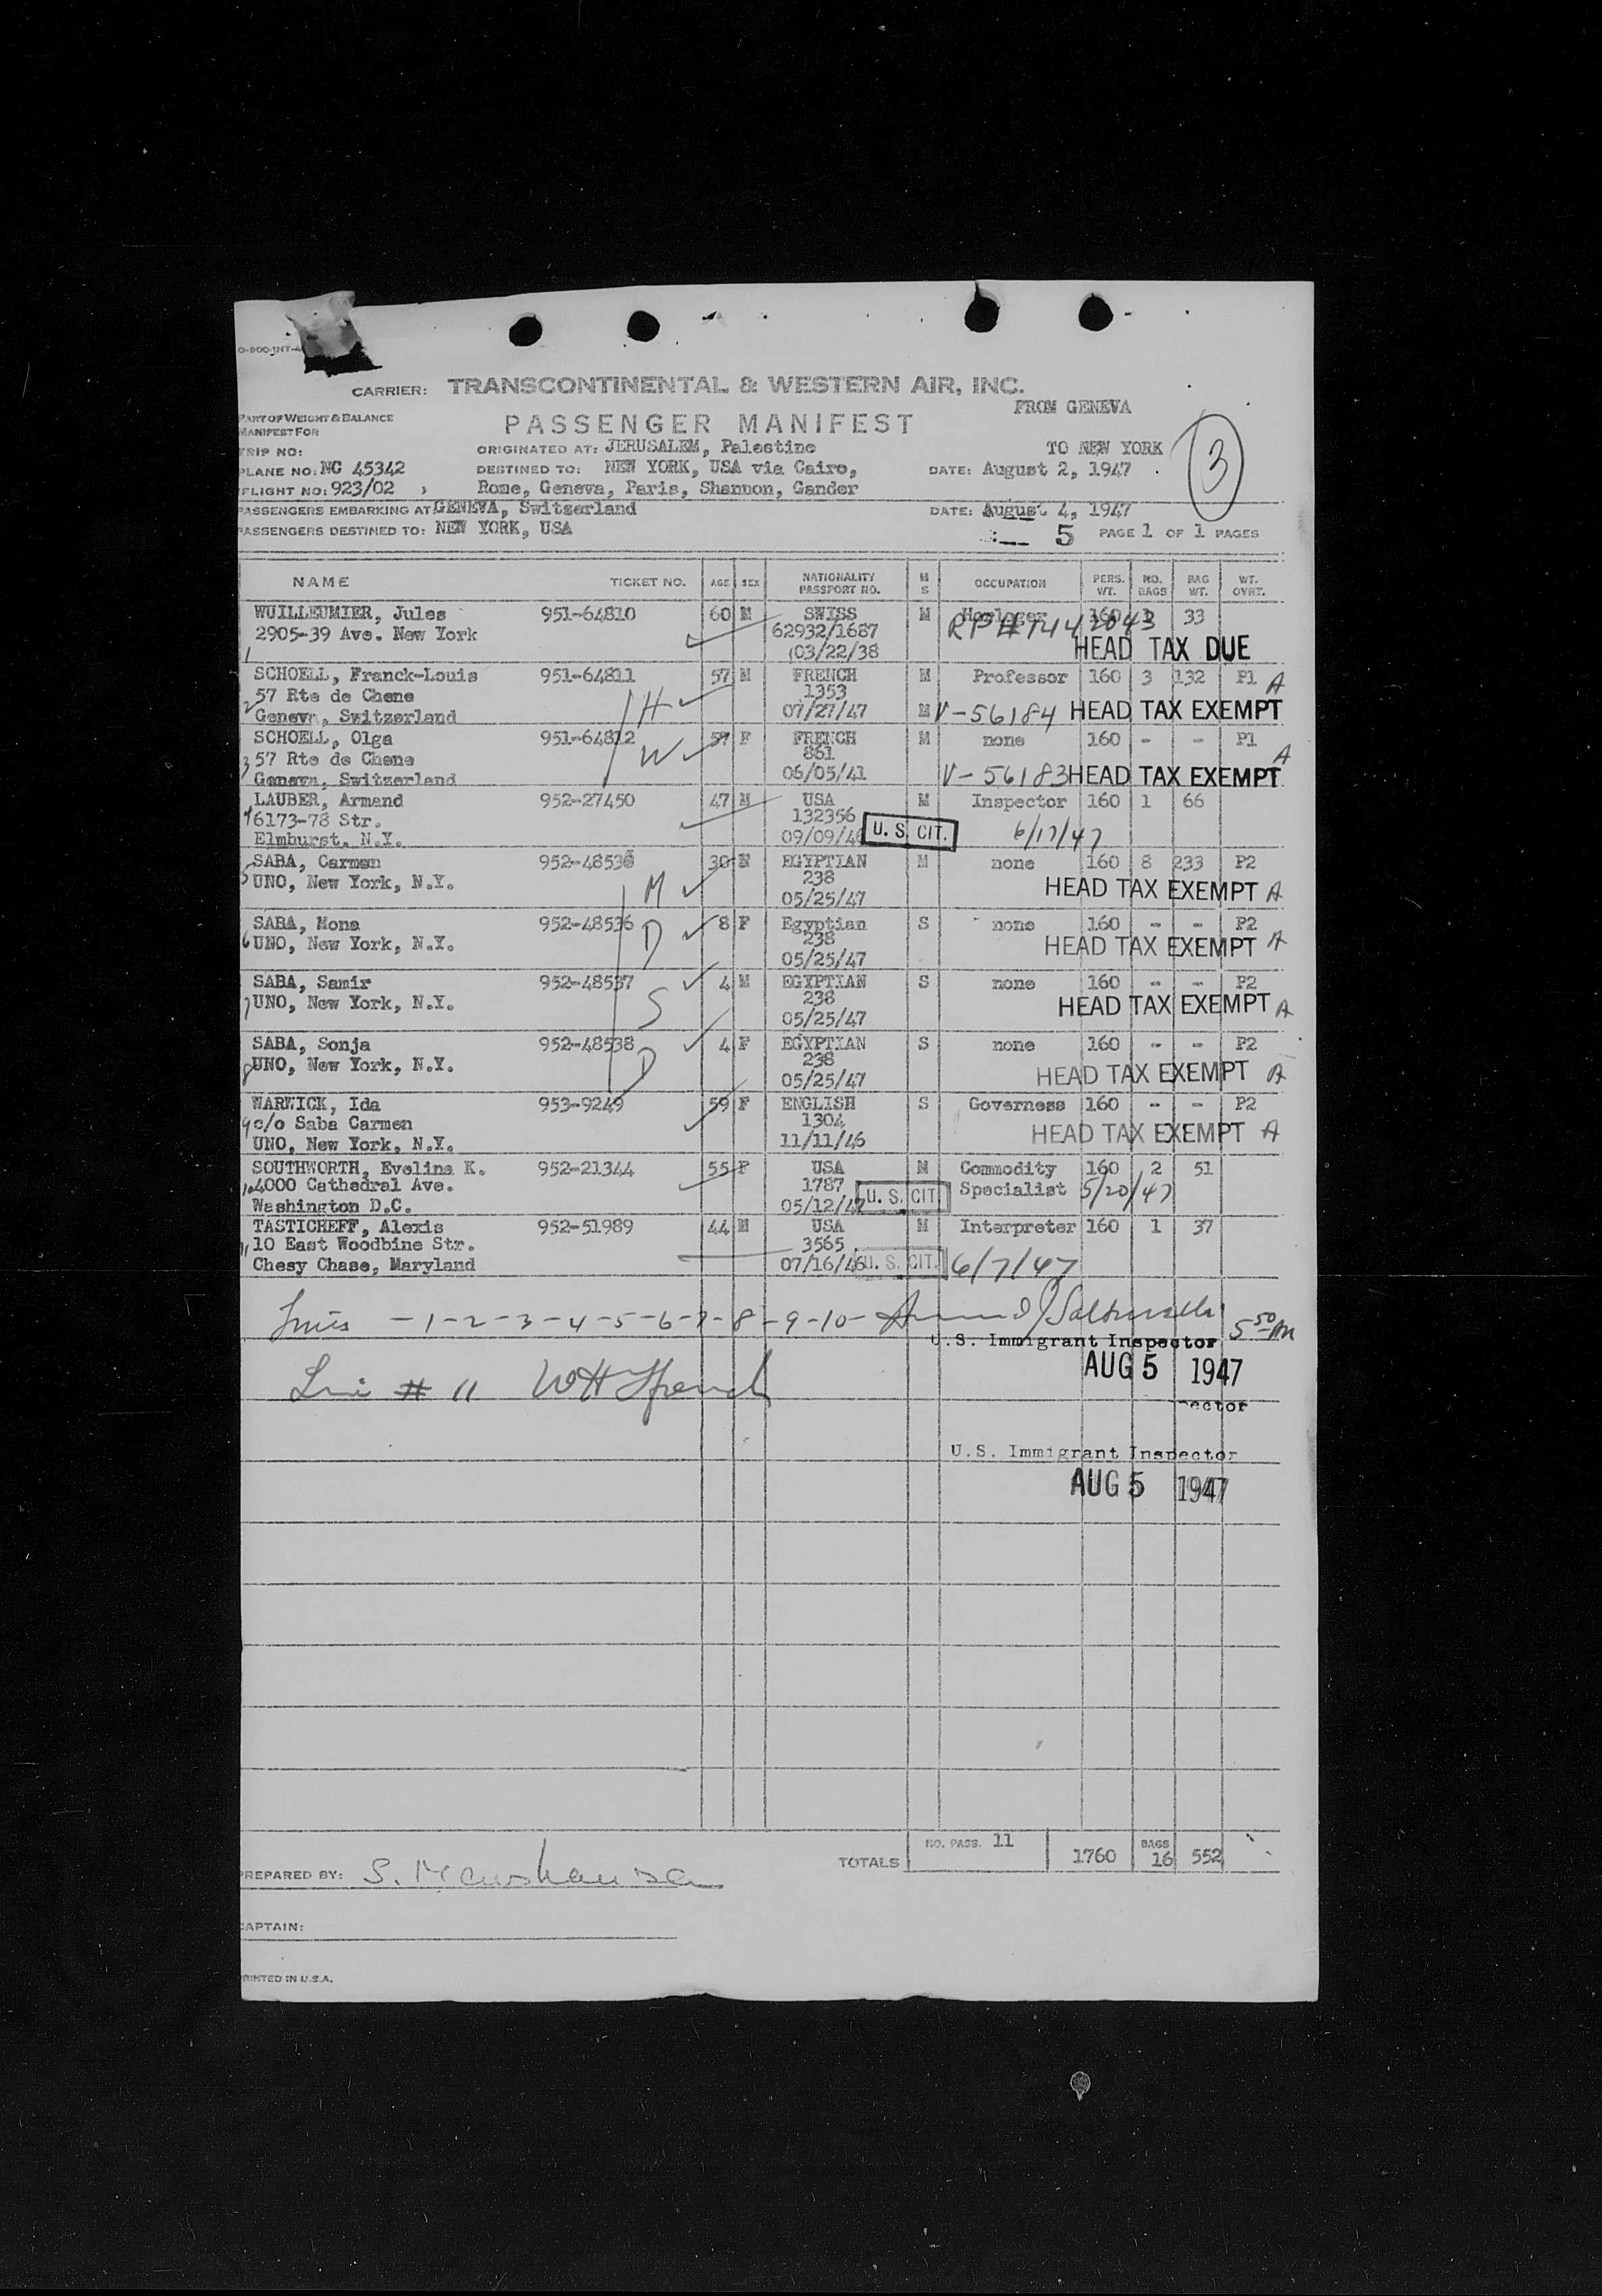 O-800-INT-
CARRIER: TRANSCONTINENTAL & WESTERN AIR, INC.
FROM GENEVA
PART OF WEIGHT & BALANCE
MANIFEST FOR
PASSENGER MANIFEST
TRIP NO:
ORIGINATED AT: JERUSALEM, Palestine
TO NEW YORK
3
PLANE NO: NC 45342
DESTINED TO: NEW YORK, USA via Cairo,
DATE: August 2, 1947
FLIGHT NO: 923/02
Rome, Geneva, Paris, Shannon, Gander
PASSENGERS EMBARKING AT: GENEVA, Switzerland
DATE: August 4, 1947
PASSENGERS DESTINED TO: NEW YORK, USA
5 PAGE 1 OF 1 PAGES
NAME TICKET NO. AGE SEX NATIONALITY PASSPORT NO. M S OCCUPATION PERS. WT. NO. BAGS BAG WT. WT. OVHT.
WUILLEUMIER, Jules 951-64810 60 M SWISS M Horloger 160 1 33
2905-39 Ave. New York 62932/1687 RP# 1442043
1 03/22/38 HEAD TAX DUE
SCHOELL, Franck-Louis 951-64811 57 M FRENCH M Professor 160 3 132 P1 A
2 57 Rte de Chene H 1353
Geneva, Switzerland 07/27/47 M V-56184 HEAD TAX EXEMPT
SCHOELL, Olga 951-64812 57 F FRENCH M none 160 - - P1
3 57 Rte de Chene W 861 A
Geneva, Switzerland 06/05/41 V-56183 HEAD TAX EXEMPT
LAUBER, Armand 952-27450 47 M USA M Inspector 160 1 66
4 6173-78 Str. 132356
Elmhurst, N.Y. 09/09/46 U. S. CIT. 6/17/47
SABA, Carmen 952-48535 30 EGYPTIAN M none 160 8 233 P2
5 UNO, New York, N.Y. M 238 HEAD TAX EXEMPT A
05/25/47
SABA, Mona 952-48536 8 F Egyptian S none 160 - - P2
6 UNO, New York, N.Y. D 238 HEAD TAX EXEMPT A
05/25/47
SABA, Samir 952-48537 4 M EGYPTIAN S none 160 - - P2
7 UNO, New York, N.Y. S 238 HEAD TAX EXEMPT A
05/25/47
SABA, Sonja 952-48538 4 F EGYPTIAN S none 160 - - P2
8 UNO, New York, N.Y. D 238
05/25/47 HEAD TAX EXEMPT A
WARWICK, Ida 953-9249 59 F ENGLISH S Governess 160 - - P2
9 c/o Saba Carmen 1304 HEAD TAX EXEMPT A
UNO, New York, N.Y. 11/11/46
SOUTHWORTH, Evelina K. 952-21344 55 F USA M Commodity 160 2 51
10 4000 Cathedral Ave. 1787 Specialist 5/20/47
Washington D.C. 05/12/47 U. S. CIT
TASTICHEFF, Alexis 952-51989 44 M USA M Interpreter 160 1 37
11 10 East Woodbine Str. 3565
Chesy Chase, Maryland 07/16/46 U. S. CIT. 6/7/47
Lines -1-2-3-4-5-6-7-8-9-10- 5 50 AM
U.S. Immigrant Inspector
Line # 11 AUG 5 1947
ector
U.S. Immigrant Inspector
AUG 5 1947
TOTALS NO. PASS. 11 1760 BAGS 16 552
PREPARED BY: S.
CAPTAIN:
PRINTED IN U.S.A.